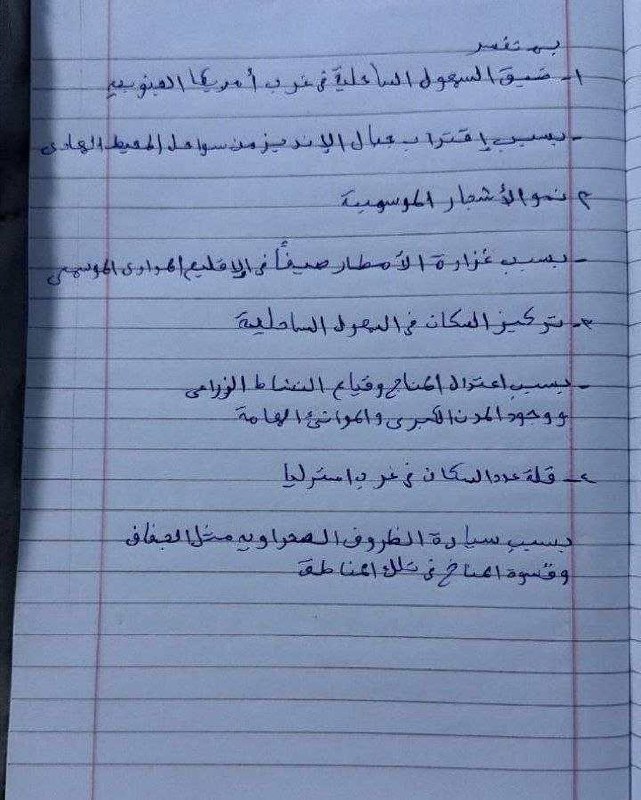 بم تفسر
١- ضيق السهول الساحلية في غرب أمريكا الجنوبية
- بسبب إقتراب جبال الإنديز من سواحل المحيط الهادى
٢ نمو الأشجار الموسمية
- بسبب غزارة الأمطار صيفاً في الإقليم المدارى الموسمي
٣- تركيز السكان في السهول الساحلية
- بسبب اعتدال المناخ وقيام النشاط الزراعى
ووجود المدن الكبرى والموانئ الهامة
٤- قلة عدد السكان في غرب استرليا
بسبب سيادة الظروف الصحراويه مثل الجفاف
وقسوة المناخ في تلك المناطق